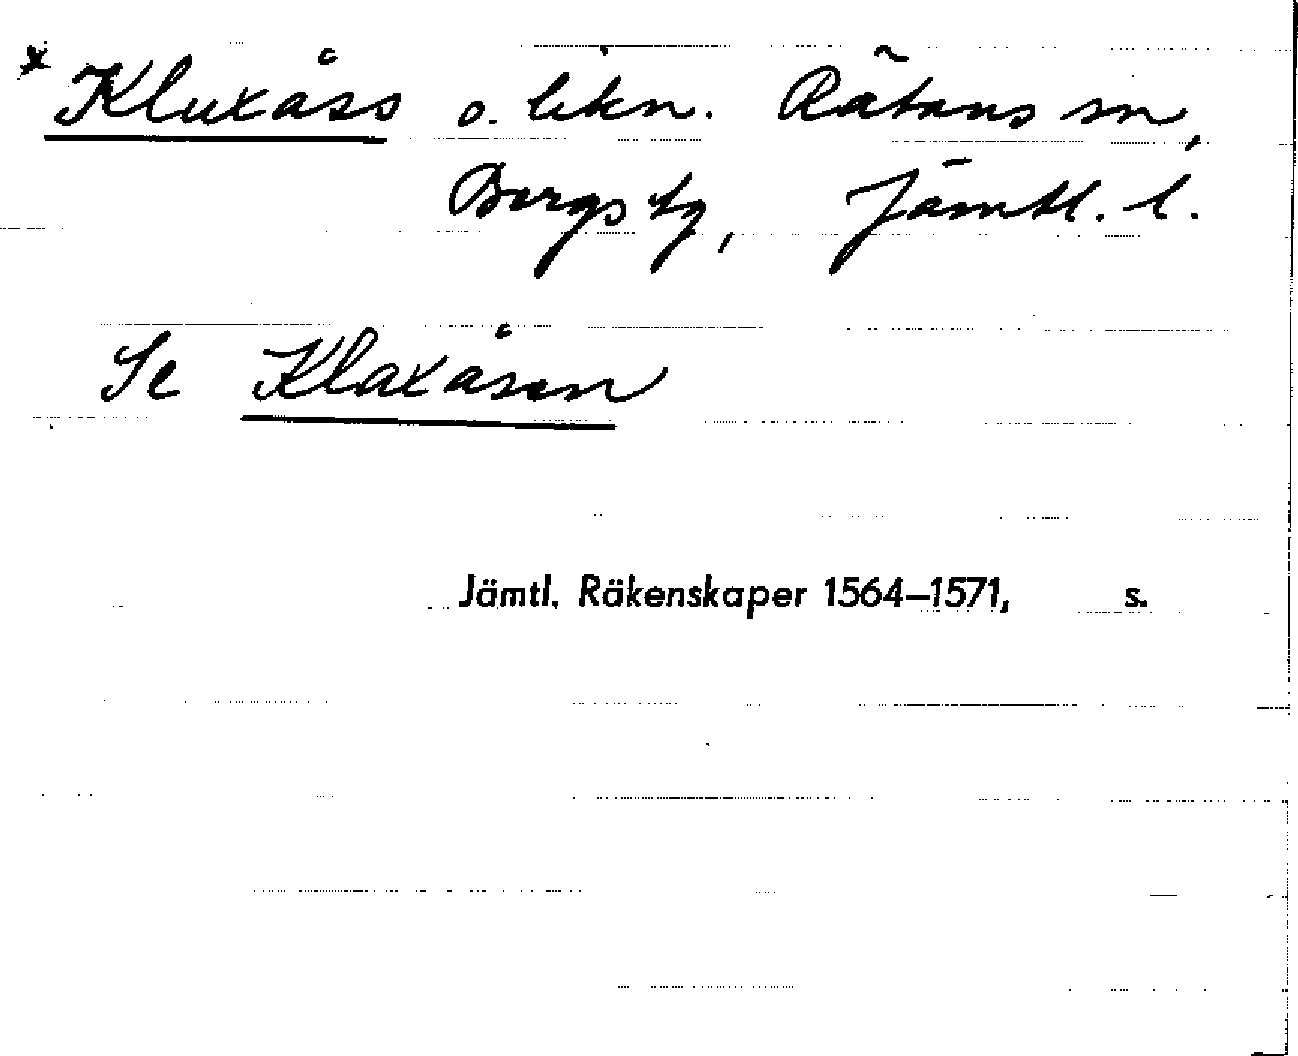 * Kluxåss o. likn. Rätans sn,
Bergs tg, Jämtl. l.
Se Klaxåsen
Jämtl. Räkenskaper 1564–1571, s.